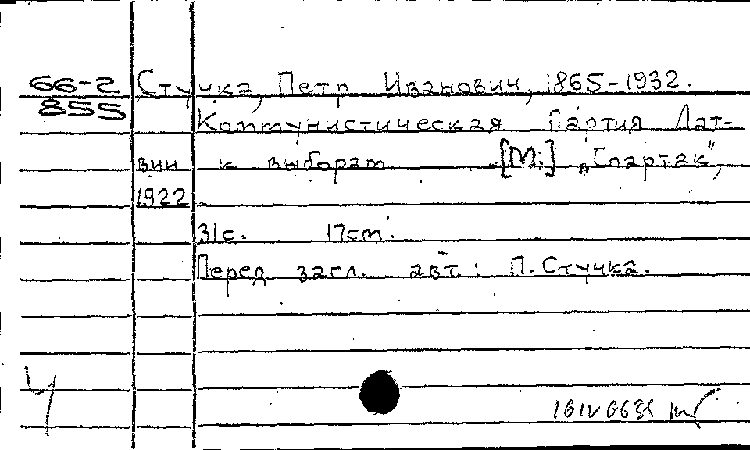 66-2 Стучка, Петр Иванович, 1865-1932.
855 Коммунистическая Партия Лат-
вии к выборам [М.] „Спартак",
1922
31с. 17см.
Перед загл. авт: П. Стучка.